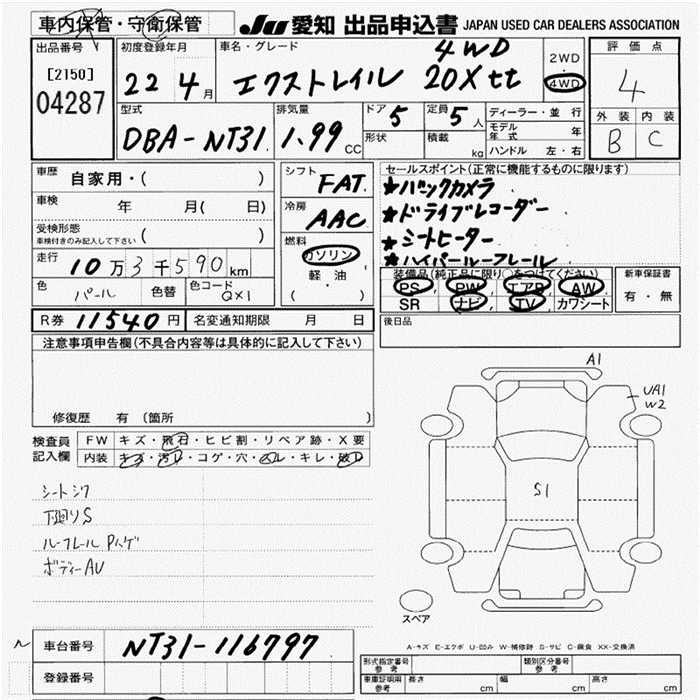 車内保管・守衛保管
JU 愛知 出品申込書 JAPAN USED CAR DEALERS ASSOCIATION
出品番号
[2150]
04287
初度登録年月
22年 4月
車名・グレード
4WD
エクストレイル 20Xtt
2WD
・
4WD
評価点
4
外装 内装
B C
型式
DBA-NT31
排気量
1.99 CC
ドア 5
形状
定員 5人
積載 kg
ディーラー・並行
モデル年式 年
ハンドル 左・右
車歴 自家用・( )
車検 年 月( 日)
受検形態
車検付きのみ記入して下さい ( )
走行 10万3千590km
色 パール 色替 色コード QX1
シフト FAT.
冷房 AAC
燃料
ガソリン
軽油
( ・ )
セールスポイント(正常に機能するものに限ります)
★バックカメラ
★ドライブレコーダー
★シートヒーター
★ハイパールーフレール
装備品(純正品に限り○をつけてください)
PS, PW, エアB, AW,
SR ナビ, TV, カワシート
新車保証書
有・無
R券 11540円 名変通知期限 月 日
後日品
注意事項申告欄(不具合内容等は具体的に記入して下さい)
修復歴 有 (箇所 )
検査員記入欄
FW キズ・飛石・ヒビ割・リペア跡・X要
内装 キズ・汚レ・コゲ・穴・スレ・キレ・破レ
シートシワ
下廻りS
ルーフレールPハゲ
ボディーAU
A1
UA1
W2
S1
スペア
A-キズ E-エクボ U-凹み W-補修跡 S-サビ C-腐食 XX-交換済
車台番号 NT31-116797
登録番号
形式指定番号 参考
類別区分番号 参考
車庫証明用 参考 長さ cm 幅 cm 高さ cm